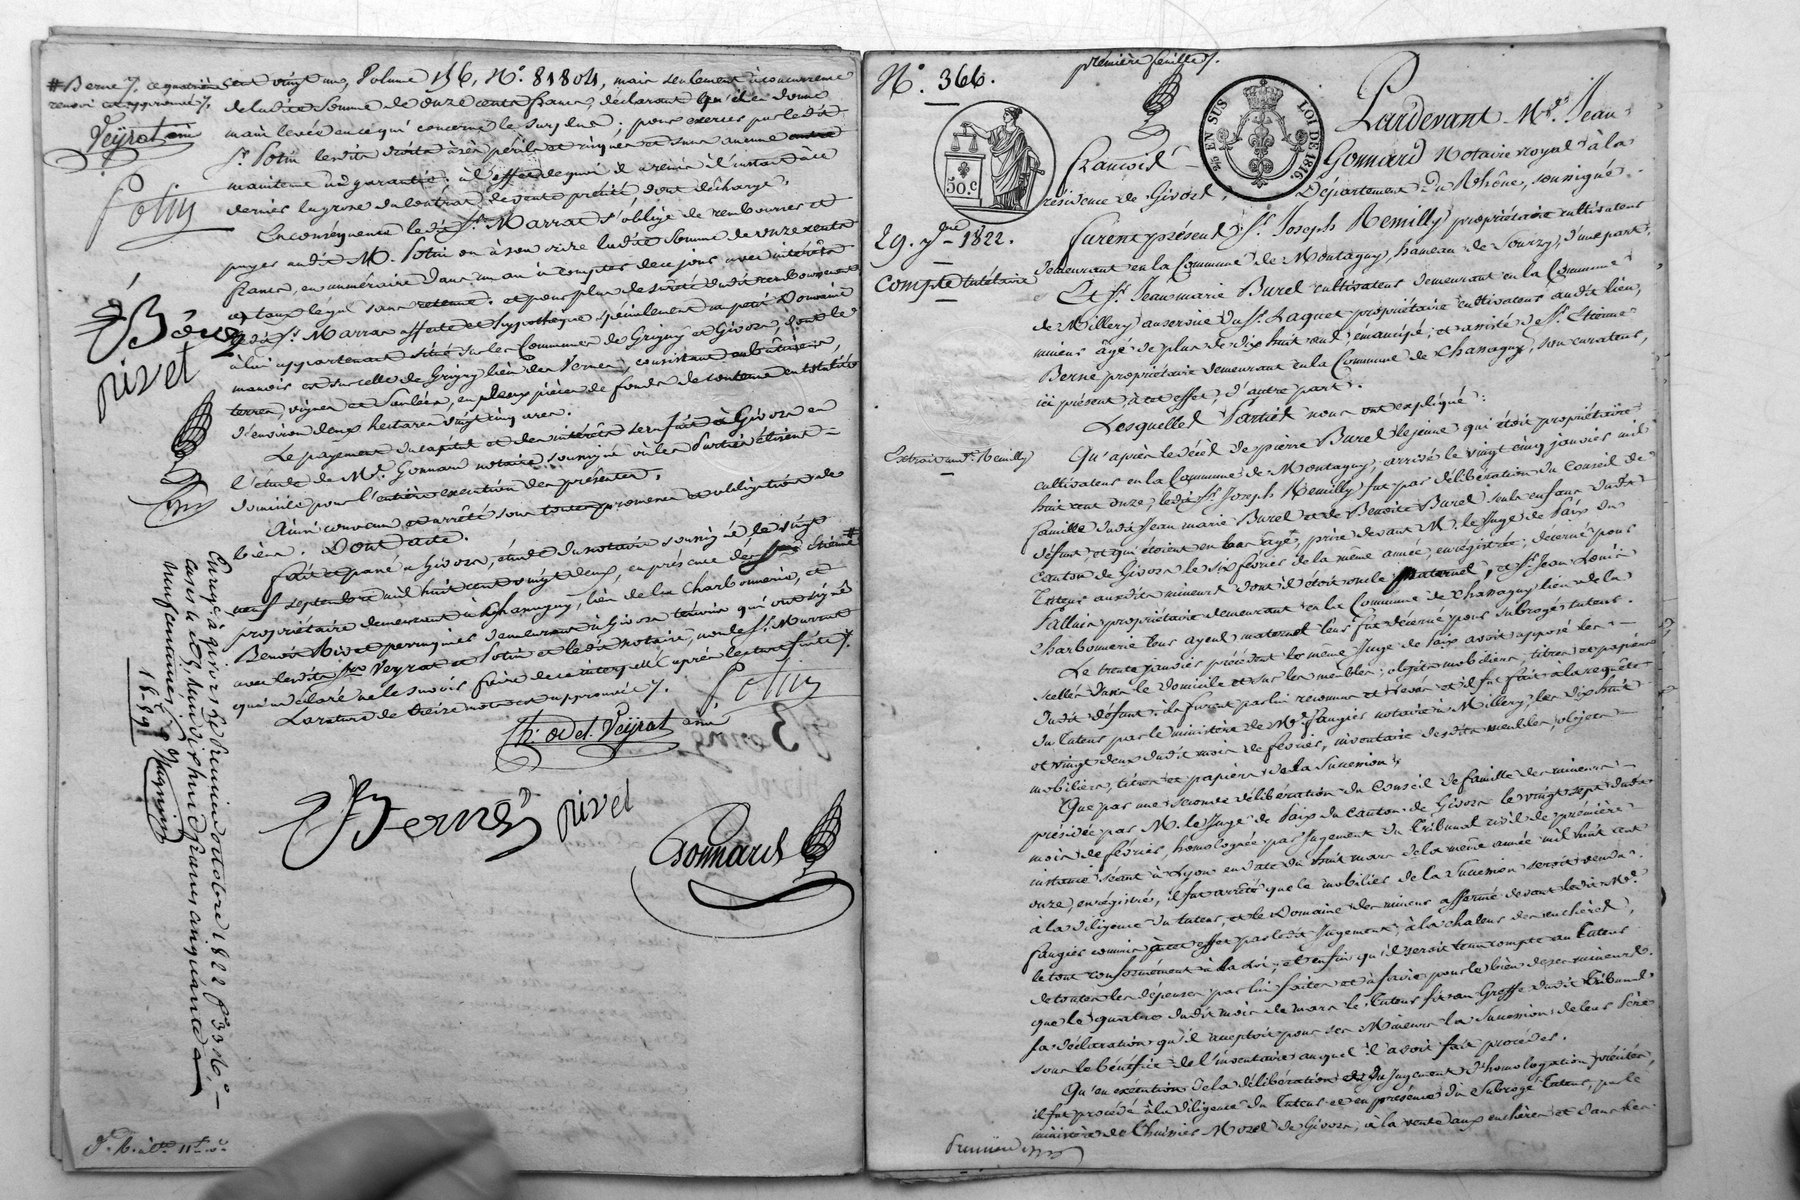 # Berne /. ce quatrième
renvoi est approuvé /.
Veyrat ainé
Potin
Berne
rivet
cent vingt un, Volume 156, N.° 81804, mais seulement à concurrence
de ladite somme de onze cents francs, déclarant qu'il en donne
main levée en ce qui concerne le surplus, pour exercer par ledit
S.r Potin lesdits droits à ses périls et risques et sans aucune
maintenue ni garantie, à l'effet de quoi il a remis à l'instant à ce
dernier la grosse du contrat de vente précité, dont décharge.
En conséquence ledit S.r Marrat s'oblige de rembourser et
payer audit M. Potin ou à son ordre ladite somme de onze cents
francs, en numéraire dans un an à compter de ce jour avec intérêts
au taux légal sans retenue. et pour plus de sureté dudit remboursement
ledit S.r Marrat affecte et hypothèque spécialement un petit Domaine
à lui appartenant situé sur les Communes de Grigny et Givors, dont le
manoir est sur celle de Grigny lieu des Vernes, consistant en bâtimens,
terres, vignes et saulées, en plusieurs pièces de fonds de contenue en totalité
d'environ deux hectares vingt cinq ares.
Le payement du capital et des intérêts sera fait à Givors en
l'étude de M.e Gonnard notaire soussigné où les Parties élisent
domicile pour l'entière exécution des présentes.
Ainsi convenu et arrêté sous toutes promesses et obligations de
biens. Dont acte.
Fait et passé à Givors, étude du notaire soussigné le vingt
neuf septembre mil huit cent vingt deux, en présence des S.rs Etienne #
propriétaire demeurant à Chassagny, lieu de la Charbonnerie, et
Benoit Rivet perruquier demeurant à Givors témoins qui ont signé
avec lesdits S.rs Veyrat et Potin et ledit notaire, non le S.r Marrat
qui a déclaré ne le savoir faire de ce interpellé après lecture faite /.
La rature de treize mots est approuvée /.
Potin
Ch. od et. Veyrat ainé
Berne
rivet
Gonnard
Enregé à givors le premier octobre 1822 f.° 33 N.°
cases
1689
N.° 366.
première feuille /.
50.c
25 EN SUS
LOI DE 1816.
Pardevant M.e Jean
François Gonnard Notaire royal à la
résidence de Givors, Département du Rhône, soussigné
29. 7bre 1822.
Compte tutélaire
Furent présens S.r Joseph Remilly propriétaire cultivateur
demeurant en la Commune de Montagny, hameau de Sourzy, d'une part,
Et S.r Jean marie Burel cultivateur demeurant en la Commune
de Millery au service du S.r Paquet propriétaire cultivateur audit lieu,
mineur âgé de plus de dix huit ans, émancipé, et assisté de S.r Etienne
Berne propriétaire demeurant en la Commune de Chassagny, son curateur,
ici présent à cet effet, d'autre part.
Lesquelles Parties nous ont expliqué:
Extrait au S.r Remilly
Qu'après le décès de pierre Burel le jeune qui étoit propriétaire
cultivateur en la Commune de Montagny, arrivé le vingt cinq janvier mil
huit cent onze, ledit S.r Joseph Remilly fut par délibération du Conseil de
famille dudit Jean marie Burel et de Benoite Burel seuls enfans dudit
défunt, et qui étoient en bas âge, prise devant M. le Juge de Paix du
Canton de Givors le six février de la même année, enregistrée, décerné pour
Tuteur auxdits mineurs dont il étoit oncle maternel, et S.r Jean Louis
propriétaire demeurant en la Commune de Chassagny lieu de la
Charbonnerie leur ayeul maternel leur fut décerné pour subrogé tuteur.
Le trente janvier précédent le même Juge de Paix avoit apposé les
scellés dans le domicile et sur les meubles, objets mobiliers, titres et papiers
dudit défunt; ils furent par lui reconnus et levés et il fut fait à la requête
du tuteur par le ministère de M.e Faugier notaire à Millery, les dix huit
et vingt deux dudit mois de février, inventaire desdits meubles, objets
mobiliers, titres et papiers de la Succession.
Que par une seconde délibération du Conseil de famille des mineurs
présidée par M. le Juge de Paix du Canton de Givors le vingt sept dudit
mois de février, homologuée par Jugement du Tribunal civil de première
instance séant à Lyon en date du huit mars de la même année mil huit cent
onze, enregistré, il fut arrêté que le mobilier de la Succession seroit vendu
à la diligence du tuteur, et le Domaine des mineurs affermé devant ledit M.e
Faugier commis à cet effet par ledit Jugement, à la chaleur des enchères,
le tout conformément à la Loi, et enfin qu'il seroit tenu compte au Tuteur
de toutes les dépenses par lui faites et à faire pour le bien de ses mineurs.
que le quatre dudit mois de mars le Tuteur fit au Greffe dudit Tribunal
la déclaration qu'il acceptoit pour ses Mineurs la Succession de leur Père
sous le bénéfice de l'inventaire auquel il avoit fait procéder.
Qu'en exécution de la délibération et du Jugement d'homologation précités,
il fut procédé à la diligence du Tuteur et en présence du Subrogé Tuteur, par le
ministère de l'huissier Morel de Givors, à la vente aux enchères et dans les